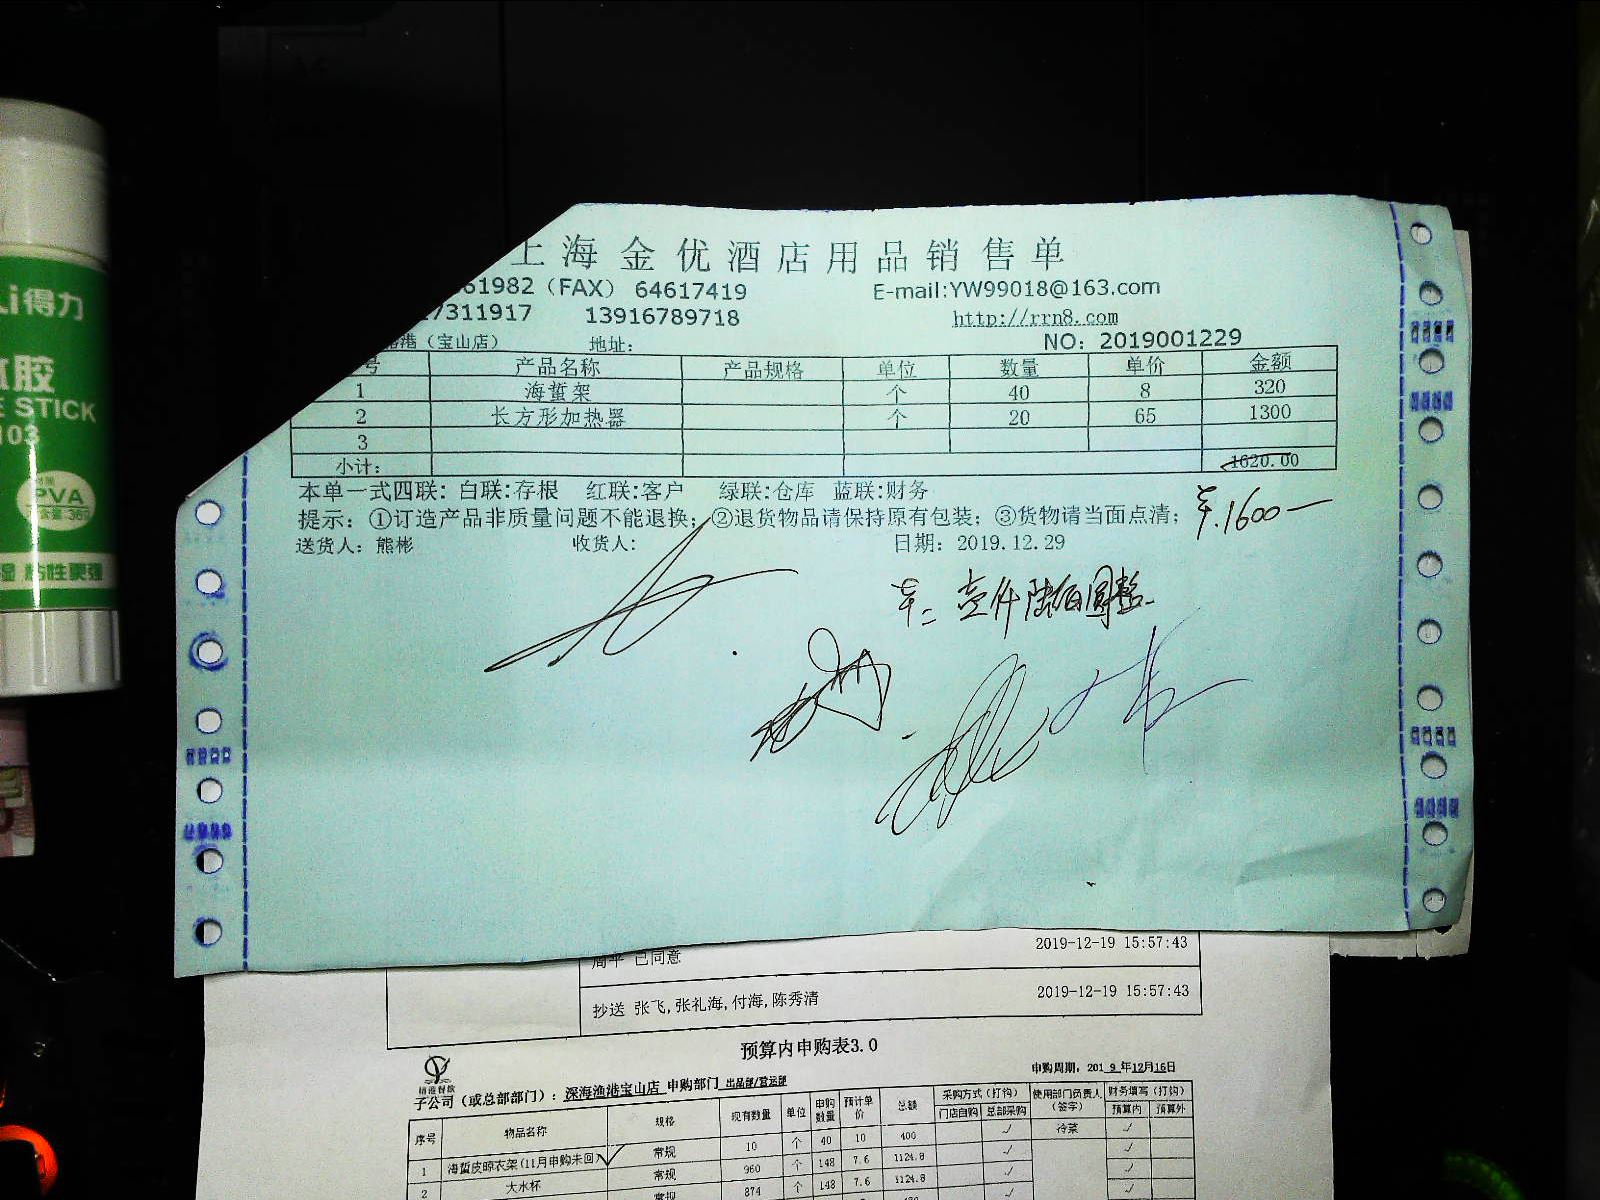 得力
胶
STICK
PVA
上海金优酒店用品销售单
61982（FAX） 64617419 E-mail:YW99018@163.com
7311917 13916789718 http://rrn8.com
港（宝山店） 地址: NO：2019001229
号 产品名称 产品规格 单位 数量 单价 金额
1 海蜇架 个 40 8 320
2 长方形加热器 个 20 65 1300
3
小计: 1620.00
本单一式四联: 白联:存根 红联:客户 绿联:仓库 蓝联:财务
提示: ①订造产品非质量问题不能退换; ②退货物品请保持原有包装; ③货物请当面点清;
¥.1600—
送货人: 熊彬 收货人: 日期: 2019.12.29
壹仟陆佰圆整
周平 已同意 2019-12-19 15:57:43
抄送 张飞,张礼海,付海,陈秀清 2019-12-19 15:57:43
预算内申购表3.0
申购周期, 2019年12月16日
子公司（或总部部门）: 深海渔港宝山店 申购部门 出品部/营运部
序号 物品名称 规格 现有数量 单位 申购数量 预计单价 总额 采购方式（打钩） 使用部门负责人（签字） 财务填写（打钩）
门店自购 总部采购 预算内 预算外
1 海蜇皮晾衣架(11月申购未回) 常规 10 个 40 10 400 ✓ 冷菜 ✓
2 大水杯 常规 960 个 148 7.6 1124.8 ✓ ✓
常规 874 个 148 7.6 1124.8 ✓ ✓